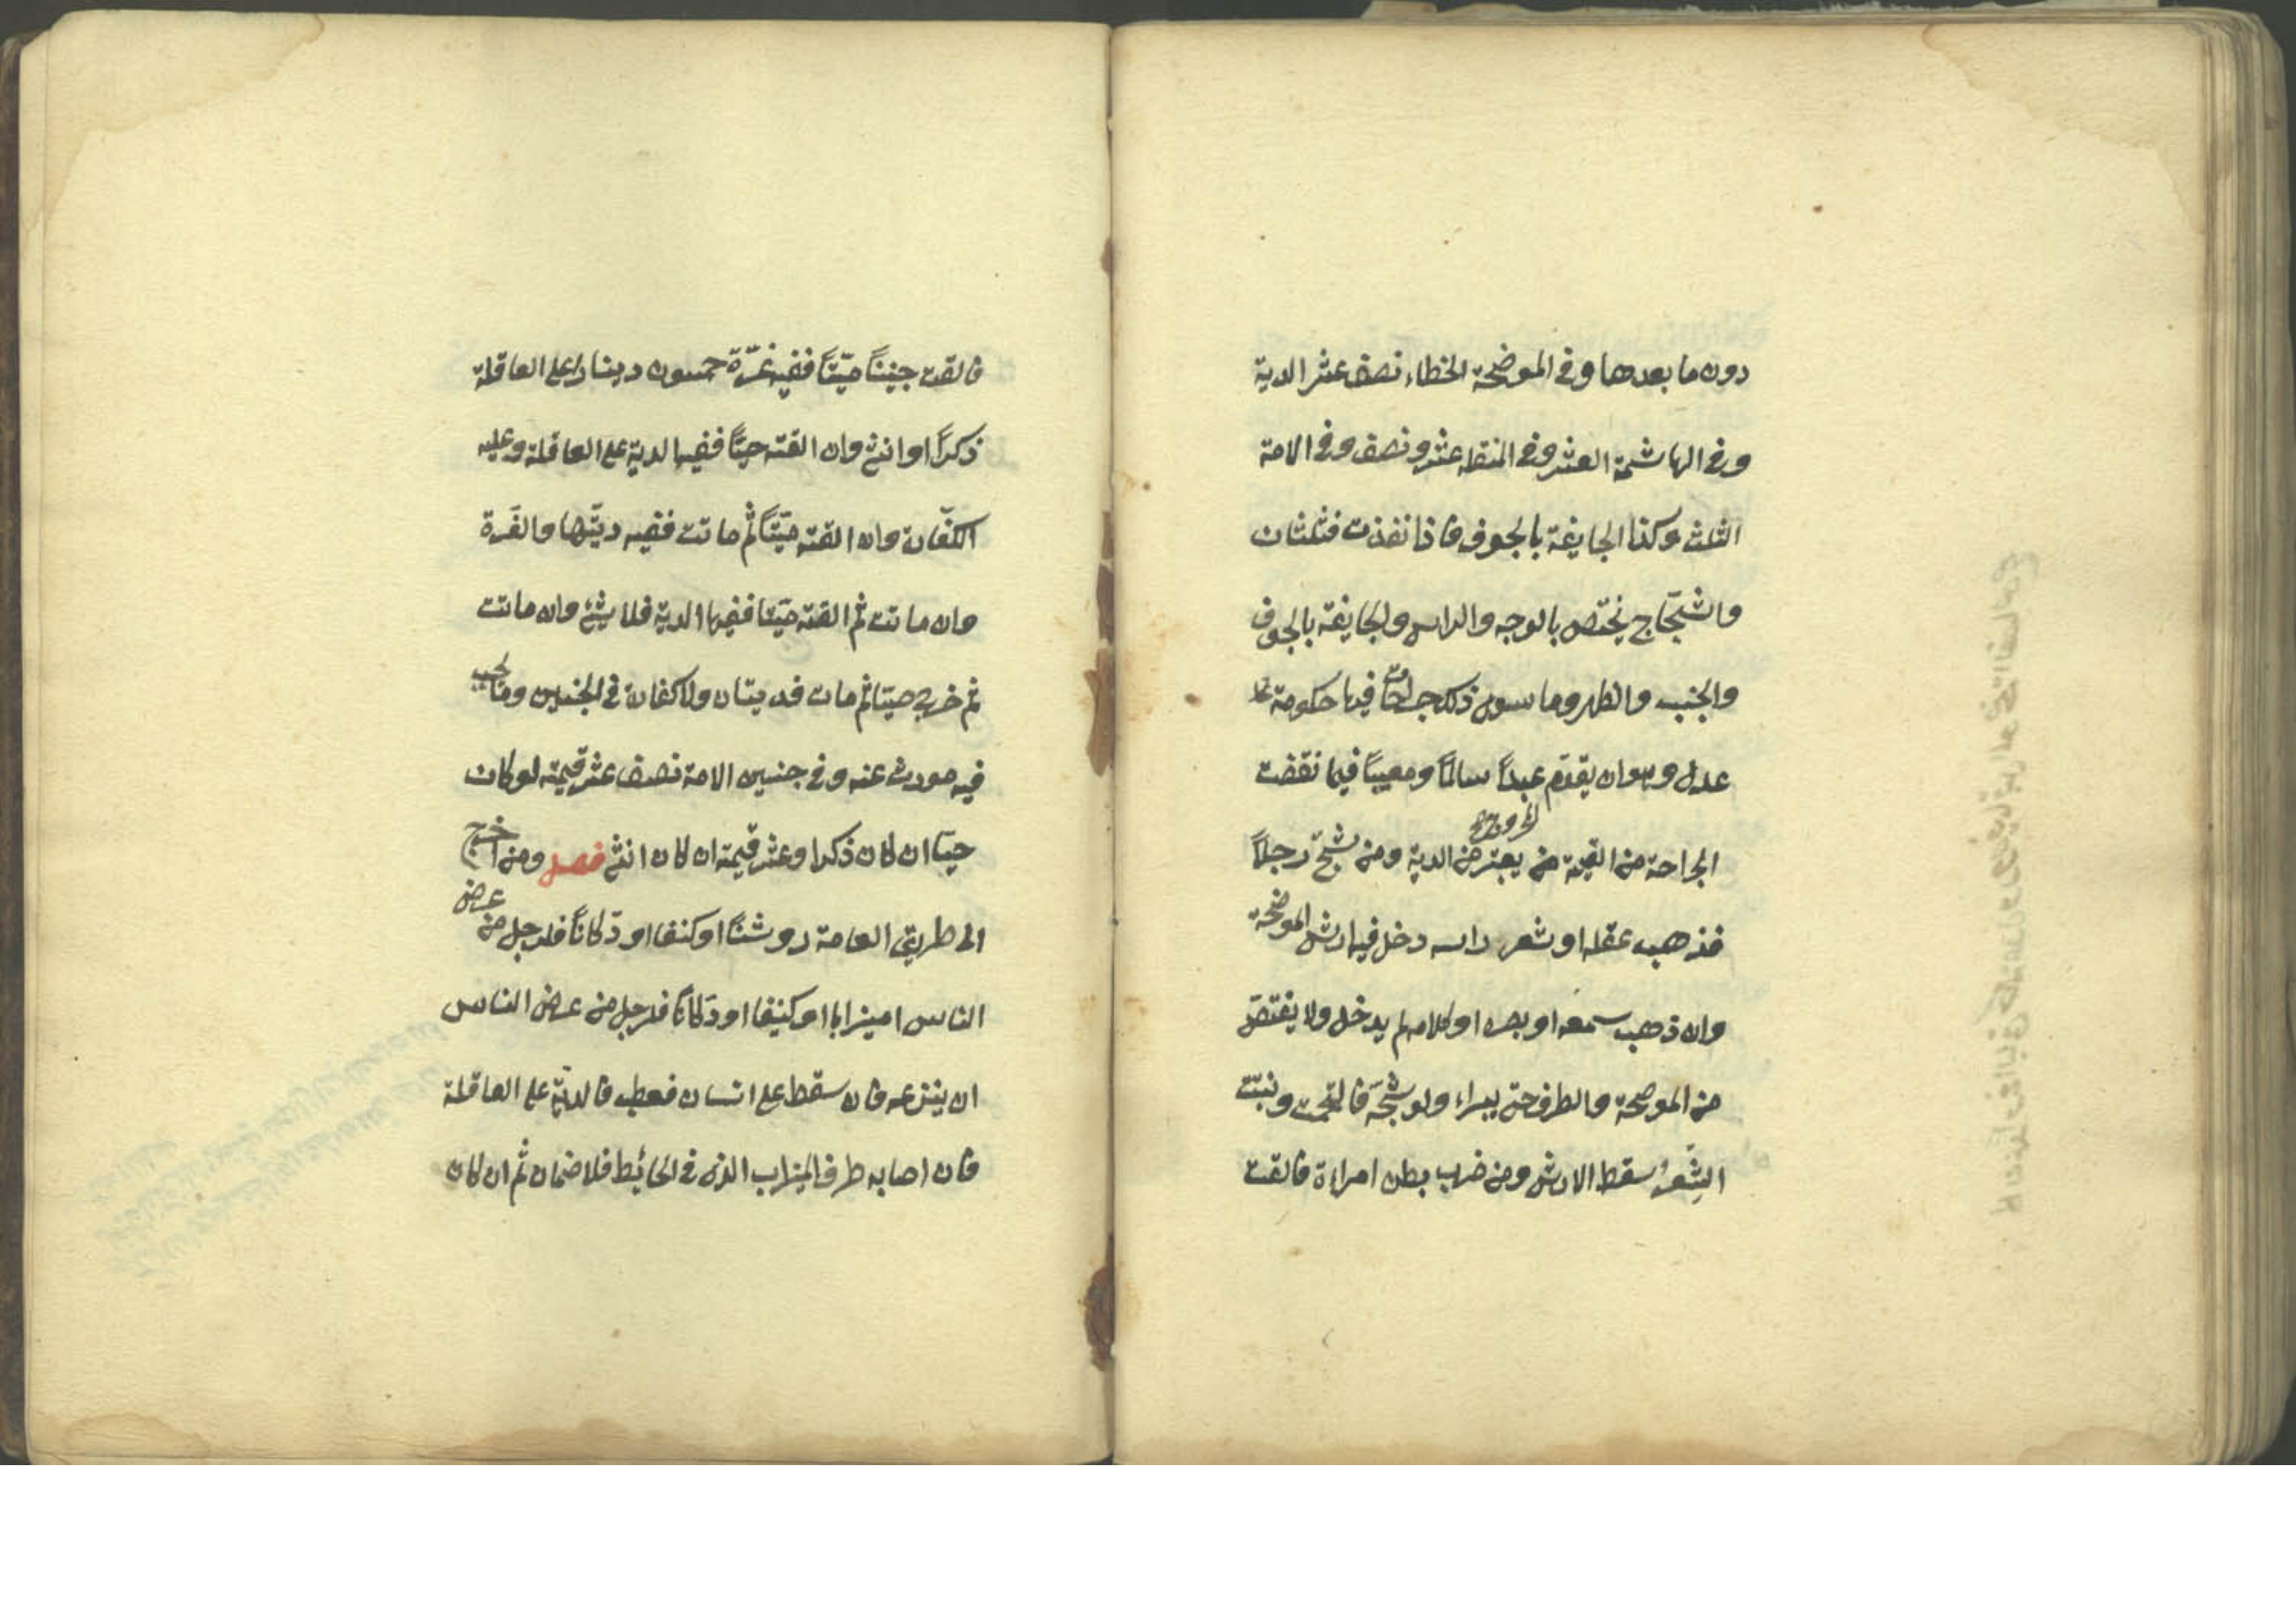 دون ما بعدها وفي الموضحة الخطاء نصف عشر الدية
وفي الهاشمة العشر وفي المنقله عشر ونصف وفي الامة
الثلث وكذا الجايفة بالجوف فاذا نفذت فثلثان
والشجّاج يختص بالوجه والراس والجايفة بالجوف
والجنب والظهر وما سوى ذلك جراحات فيها حكومة
عدل وهو ان يقوّم عبداً سالماً ومعيباً فيما نقضت
الجراحة من القيمة يعتبر من الدية ومن شجّ رجلاً
فذهب عقله او شعر راسه دخل فيه ارش الموضحة
وان ذهب سمعه او بصره او كلامه لم يدخل ولا يقتصّ
من الموضحة والطرف حتى يبراء ولو شجّه فالتحمت ونبتت
الشعرُ سقط الارش ومن ضرب بطن امراة فالقت
فالقت جنيناً ميّتاً ففيه غرّة خمسون ديناراً على العاقلة
ذكراً او انثى وان القته حيّاً ففيه الدية على العاقلة وعليه
الكفّارة وان القته ميّتاً ثم ماتت ففيه ديتّها والغرة
وان ماتت ثم القته ميّتا ففيها الدية فلا شئ وان ماتت
ثم خرج حيّا ثم مات فديتان ولا كفارة في الجنين وما يجب
فيه موروث عنه وفي جنين الامة نصف عشر قيمته لو كان
حيّا ان كان ذكرا وعشر قيمته ان كان انثى فصل ومن اخرج
الى طريق العامة روشنًا او كنفا او دّكاناً فلرجل من عرض
الناس او ميزابا او كنيفا او دكاناً فلرجل من عرض الناس
ان ينزعه فان سقط على انسان فعطب فالديّة على العاقلة
فان اصابه طرف الميزاب الذي في الحائط فلا ضمان ثم ان كان